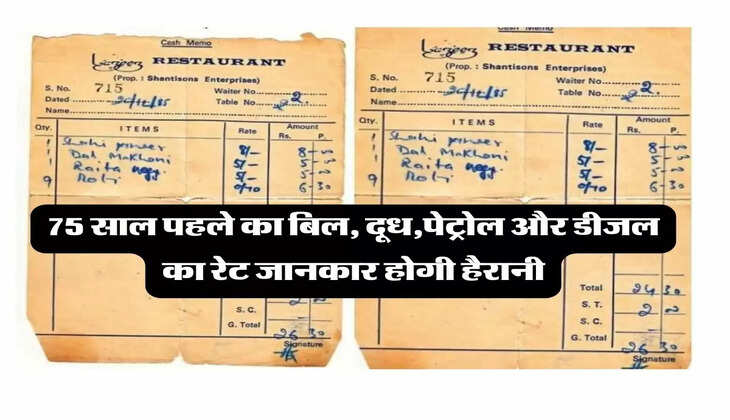 Cash Memo
Lazeez RESTAURANT
(Prop. : Shantisons Enterprises)
S. No. 715 Waiter No.
Dated Table No. 2
Name
Qty. ITEMS Rate Amount
Rs. P.
1 Shahi paneer 8/- 8
1 Dal Makhani 5/- 5
1 Raita 5/- 5
9 Roti 0/70 6-30
S. C.
G. Total 26 30
Signature
Cash Memo
Lazeez RESTAURANT
(Prop. : Shantisons Enterprises)
S. No. 715 Waiter No.
Dated Table No. 2
Name
Qty. ITEMS Rate Amount
Rs. P.
1 Shahi paneer 8/- 8
1 Dal Makhani 5/- 5
1 Raita 5/- 5
9 Roti 0/70 6-30
Total 24 30
S. T. 2
S. C.
G. Total 26 30
Signature
75 साल पहले का बिल, दूध,पेट्रोल और डीजल
का रेट जानकार होगी हैरानी